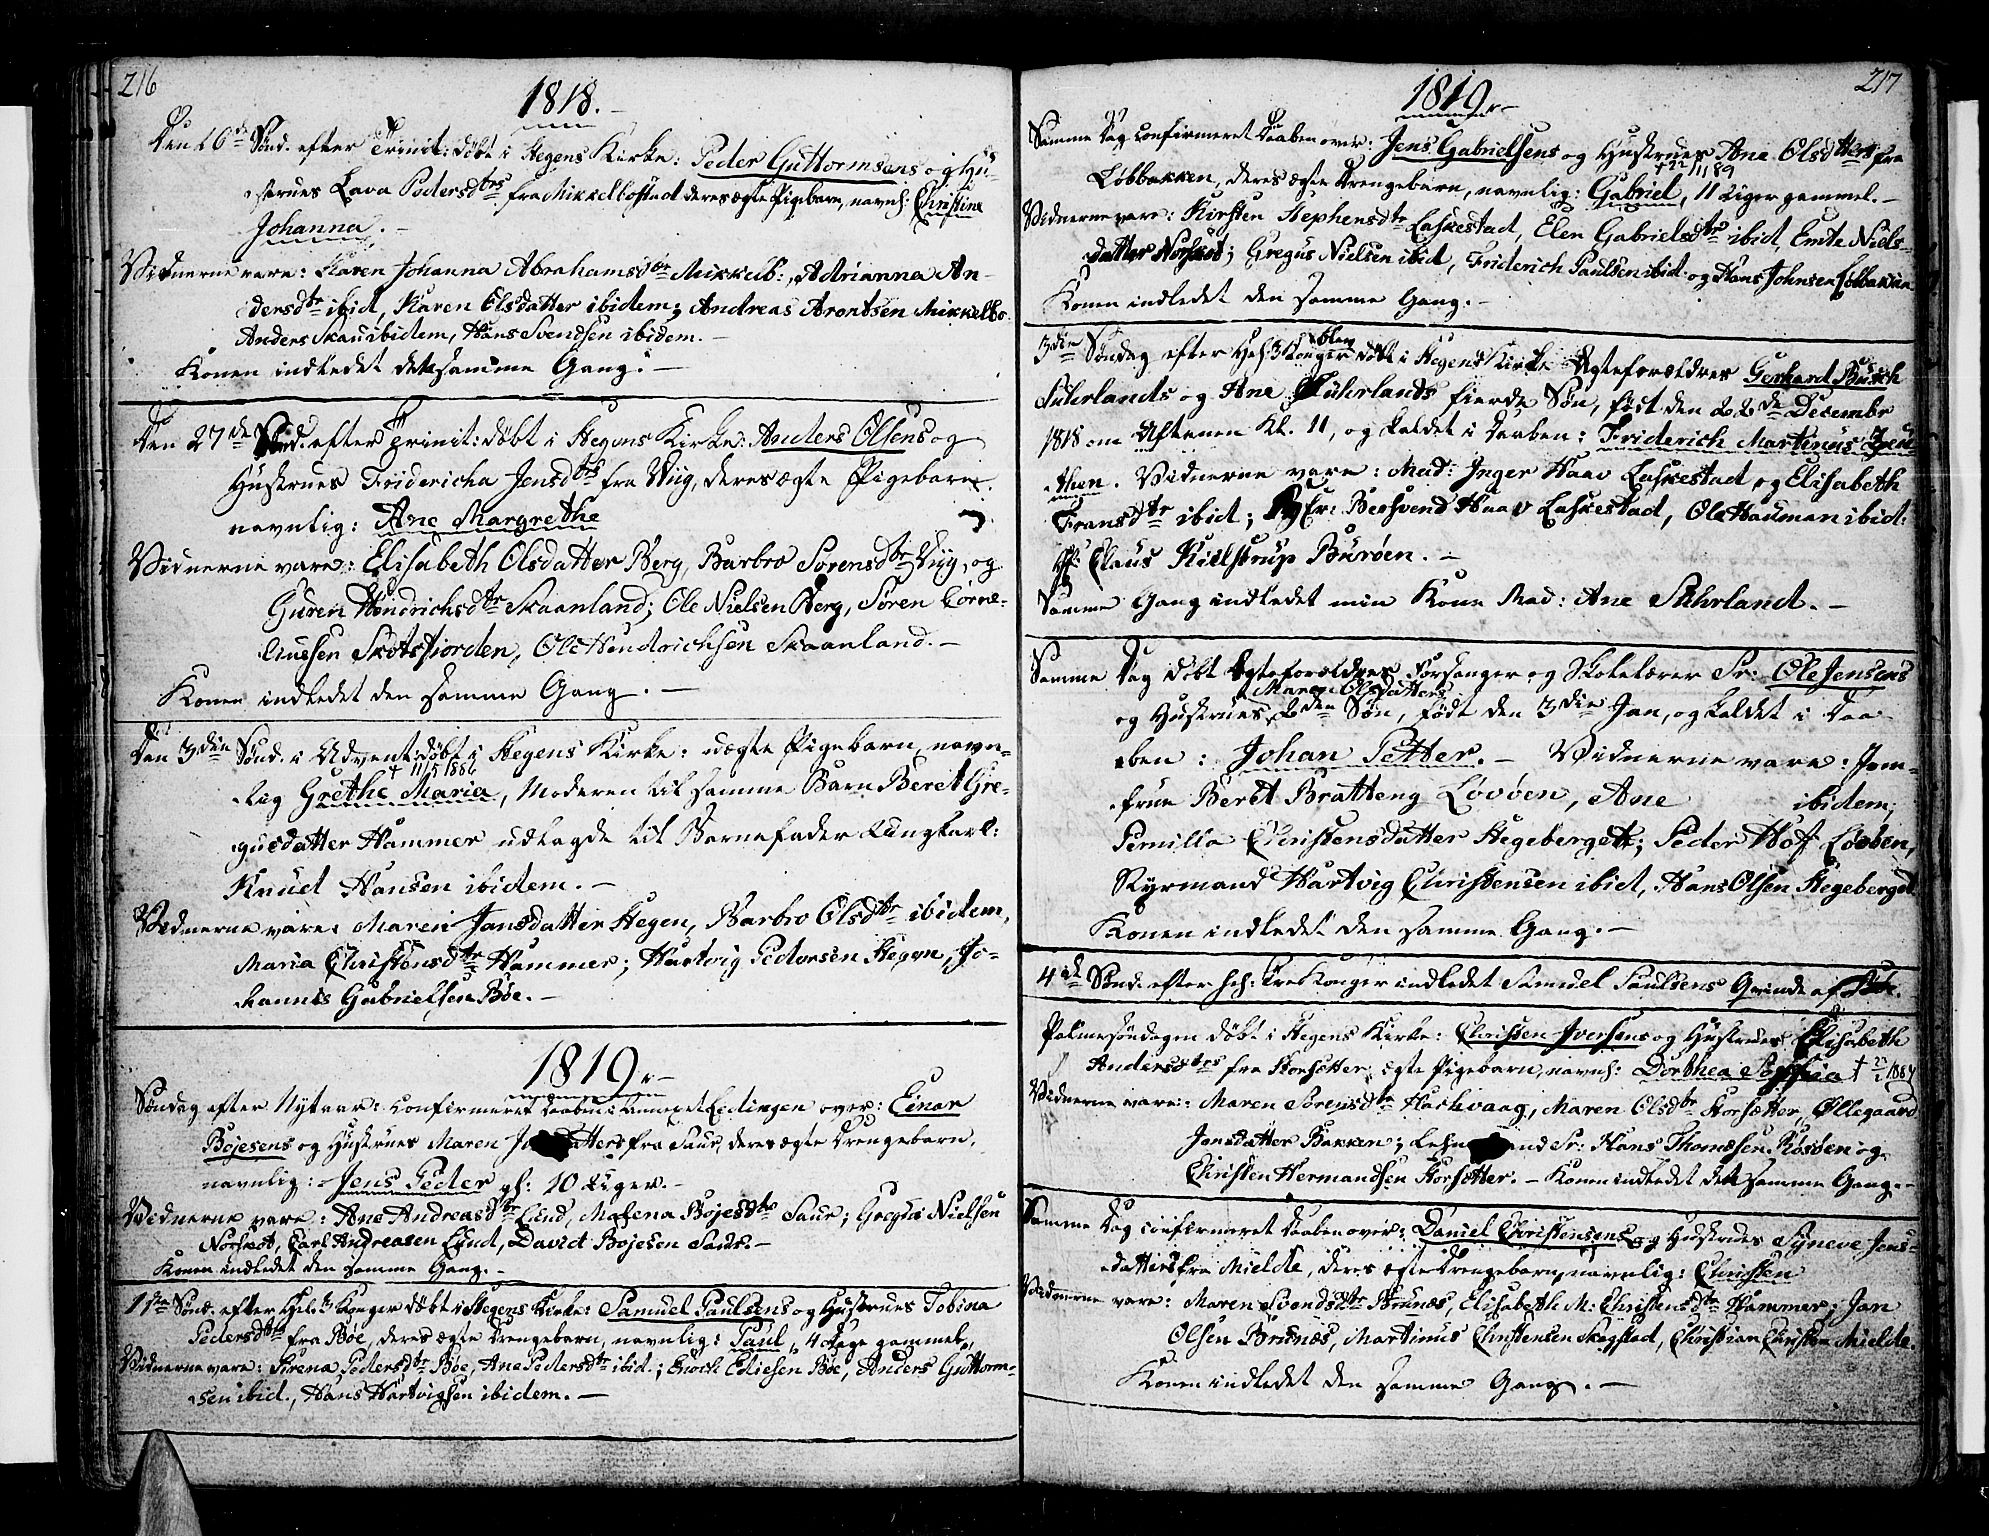 216
1818.
Den 16de Sønd. efter Trinit: døbt i Stegens Kirke: Peder Guttormsens og Hu-
strues Lava Pedersdtrs fra Mikkelbostad deres ægte Pigebarn, navnl: Christine
Johanna.
Vidnerne vare: Karen Johanna Abrahamsdtr Mikkelb:, Adrianna An-
dersdtr ibid, Karen Olsdatter ibidem; Andreas Arontsen Mikkelbo.
Anders Skau ibidem, Hans Svendsen ibidem.
Konen indledet den samme Gang.
Den 27de Sønd. efter Trinit: døbt i Stegens Kirke: Anders Olsens og
Hustrues Friidericha Jensdtrs fra Viig, deres ægte Pigebarn
navnlig: Ane Margrethe
Vidnerne vare: Elisabeth Olsdatter Berg, Barbro Sørensdtr Viig, og
Guren Hindrichsdtr Skaanland; Ole Nielsen Berg, Søren Corne-
liussen Skotsfiorden, Ole Hendrichsen Skaanland.
Konen indledet den samme Gang.
Den 3die Sønd. i Advent: døbt i Stegens Kirke: uægte Pigebarn, navn-
† 11/5 1886
lig Grethe Maria, Moderen til samme Barn Berit Gre-
gusdatter Hammer udlagde til Barnefader Ungkarl:
Knud Hansen ibidem.
Vidnerne vare: Maren Jansdatter Stegen, Barbro Olsdtr ibidem,
Maria Christensdtr Hammer; Hartvig Pedersen Stegen, Jo-
hannis Gabrielsen Bøe.
1819
Søndag efter Nytaar: confirmeret Daaben i Annexet Ledingen over: Einar
Bojesens og Hustrues Maren fra Saur, deres ægte Drengebarn,
navnlig: Jens Peder gl: 10 Uger.
Vidnerne vare: Ane Andreasdtr Lund, Malena Bojesdtr Saur; Gregus Nielsen
Norskot, Carl Andreasen Lund, David Bojesen Saur.
Konen indledet den samme Gang.
1ste Sønd. efter Hel. 3 Konger døbt i Stegens Kirke: Samuel Paulsens og Hustrues Tobina
Pedersdtr fra Bøe, deres ægte Drengebarn, navnlig: Paul, 4 Dage gammel,
Vidnerne vare: Sirena Pedersdtr Bøe, Ane Pedersdtr ibid.; Enoch Eliesen Bøe, Anders Guttorm-
sen ibid., Hans Hartvigsen ibidem.
217
1819
Samme Dag confirmeret Daaben over: Jens Gabrielsens og Hustrues Ane Olsdtters fra
Løbbakken, deres ægte Drengebarn, navnlig: Gabriel, 11 Uger gammel.
Vidnerne vare: Kirsten Stephensdtr Laskestad, Elen Gabrielsdtr ibid, Emte Niels-
datter Norskot; Gregus Nielsen ibid, Friderich Paulsen ibid. og Hans Johnsen Løbbakken
Konen indledet den samme Gang.
3die Søndag efter Hel: 3 Konger døbt i Stegens Kirke Ægteforældres Gerhard Busch
Suhrlands og Ane Suhrlands fierde Søn, født den 22de Decembr
1818 om Aftenen Kl. 11, og kaldet i Daaben: Friderich Martinus
. Vidnerne vare: Mad: Inger Haav Laskestad og Elisabeth
Fransdtr ibid; Hr: Bersvend Haav Laskestad, Ole Hauman ibid:
Hr Claus Kiellstrup Burøen.
Samme Gang indledet min Kone Mad: Ane Suhrland.
Samme Dag døbt Ægteforældres Forsanger og Skolelærer Sr: Ole Jensens
Maren Olsdatters
og Hustrues 2den Søn, født den 3die Jan, og kaldet i Daa-
ben: Johan Petter. Vidnerne vare: Jom-
frue Beret Bratteng Lovøen, Ane ibidem;
Pernilla Christensdatter Stegeberget; Peder Hof Løeben,
Styrmand Hartvig Christensen ibid, Hans Olsen Stegeberget
Konen indledet den samme Gang.
4de Sønd. efter Hel: Tre Konger indledet Samuel Paulsens Qvinde af Bøe.
Palmesøndagen døbt i Stegens Kirke: Christen Iversens og Hustrues Elisabeth
Andersdtrs fra Storsætter, ægte Pigebarn, navnl: Dorthea Sophia
Vidnerne vare: Maren Sørensdtr Haskvaag, Maren Olsdtr Storsætter, Øllegaard
Jonsdatter Bakken; Sr: Hans Thomesen Røsøen og
Christen Hermandsen Storsætter. Konen indledet den samme Gang.
Samme Dag confirmeret Daaben over: Daniel Christensens og Hustrues Syneve Jens-
datters fra Mielde, deres ægte Drengebarn, navnlig: Christen
Vidnerne vare: Maren Svendsdtr Brunæs, Elisabeth M: Christensdtr Hammer; Jan
Olsen Brunæs, Martinus Christensen Skogstad, Christian Christen Mielde.
Konen indledet den samme Gang.